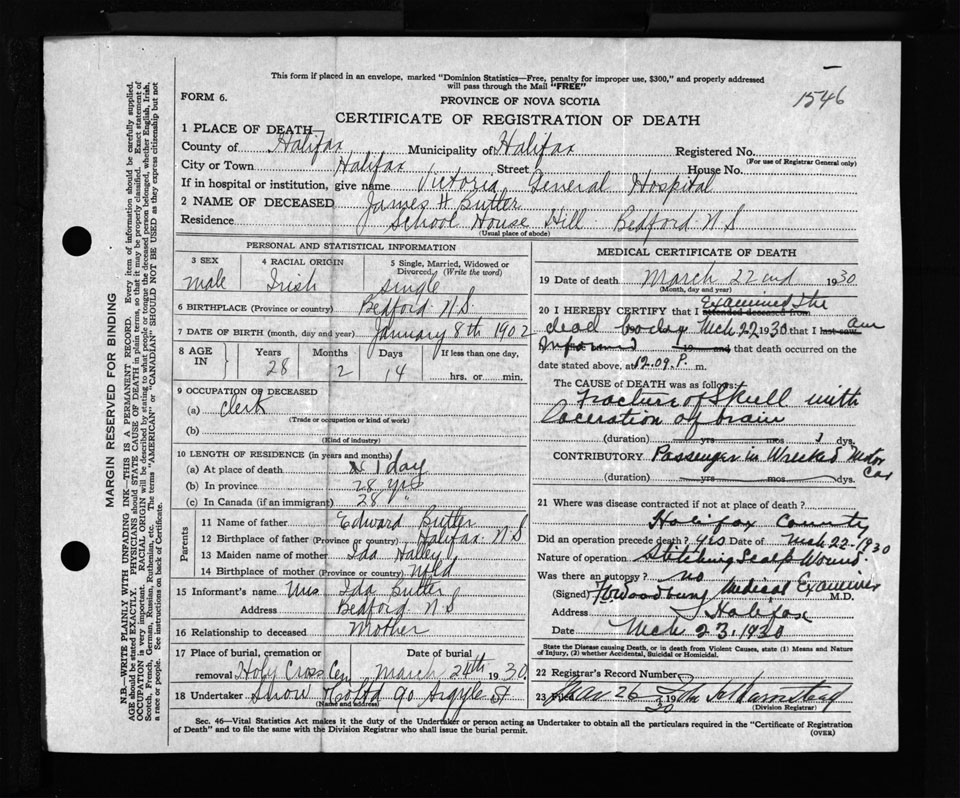 This form if placed in an envelope, marked "Dominion Statistics—Free, penalty for improper use, $300," and properly addressed
will pass through the Mail "FREE"
FORM 6.
PROVINCE OF NOVA SCOTIA
1546
CERTIFICATE OF REGISTRATION OF DEATH
1 PLACE OF DEATH—
County of Halifax Municipality of Halifax Registered No.
(For use of Registrar General only)
City or Town Halifax Street House No.
If in hospital or institution, give name Victoria General Hospital
2 NAME OF DECEASED James H Butler
Residence School House Hill Bedford N S
(Usual place of abode)
PERSONAL AND STATISTICAL INFORMATION
3 SEX 4 RACIAL ORIGIN 5 Single, Married, Widowed or
Divorced. (Write the word)
male Irish single
6 BIRTHPLACE (Province or country) Bedford N.S.
7 DATE OF BIRTH (month, day and year) January 8th 1902
8 AGE IN Years Months Days If less than one day,
28 2 14 hrs. or min.
9 OCCUPATION OF DECEASED
(a) Clerk
(Trade or occupation or kind of work)
(b)
(Kind of industry)
10 LENGTH OF RESIDENCE (in years and months)
(a) At place of death 1 day
(b) In province 28 yrs
(c) In Canada (if an immigrant) 28 "
Parents
11 Name of father Edward Butler
12 Birthplace of father (Province or country) Halifax N S
13 Maiden name of mother Ida Halley
14 Birthplace of mother (Province or country) Nfld
15 Informant's name Mrs Ida Butler
Address Bedford N S
16 Relationship to deceased Mother
17 Place of burial, cremation or Date of burial
removal Holy Cross Cem March 24th 1930
18 Undertaker Snow & Co Ltd 90 Argyle St
(Name and address)
MEDICAL CERTIFICATE OF DEATH
19 Date of death March 22nd 1930
(Month, day and year)
Examined the
20 I HEREBY CERTIFY that I attended deceased from
dead body Mch 22 1930 that I last saw am
informed 19 and that death occurred on the
date stated above, at 12.09 P. m.
The CAUSE OF DEATH was as follows:
Fracture of Skull with
laceration of brain
(duration) yrs mos 1 dys.
CONTRIBUTORY Passenger in Wrecked Motor
Car
(duration) yrs mos dys.
21 Where was disease contracted if not at place of death?
Halifax County
Did an operation precede death? yes Date of Mch 22. 1930
Nature of operation Stitching Scalp Wound.
Was there an autopsy? no
(Signed) Medical Examiner M.D.
Address Halifax
Date Mch 23. 1930
State the Disease causing Death, or in death from Violent Causes, state (1) Means and Nature
of Injury, (2) whether Accidental, Suicidal or Homicidal.
22 Registrar's Record Number
23 Mar 26 30
(Division Registrar)
Sec. 46—Vital Statistics Act makes it the duty of the Undertaker or person acting as Undertaker to obtain all the particulars required in the "Certificate of Registration
of Death" and to file the same with the Division Registrar who shall issue the burial permit.
(OVER)
MARGIN RESERVED FOR BINDING
N.B.—WRITE PLAINLY WITH UNFADING INK—THIS IS A PERMANENT RECORD. Every item of information should be carefully supplied.
AGE should be stated EXACTLY. PHYSICIANS should STATE CAUSE OF DEATH in plain terms, so that it may be properly classified. Exact statement of
OCCUPATION is very important. RACIAL ORIGIN will be described by stating to what people or tongue the deceased person belonged, whether English, Irish,
Scotch, French, German, Russian, Ruthenian, etc. The terms "AMERICAN" or "CANADIAN" SHOULD NOT BE USED as they express citizenship but not
a race or people. See instructions on back of Certificate.